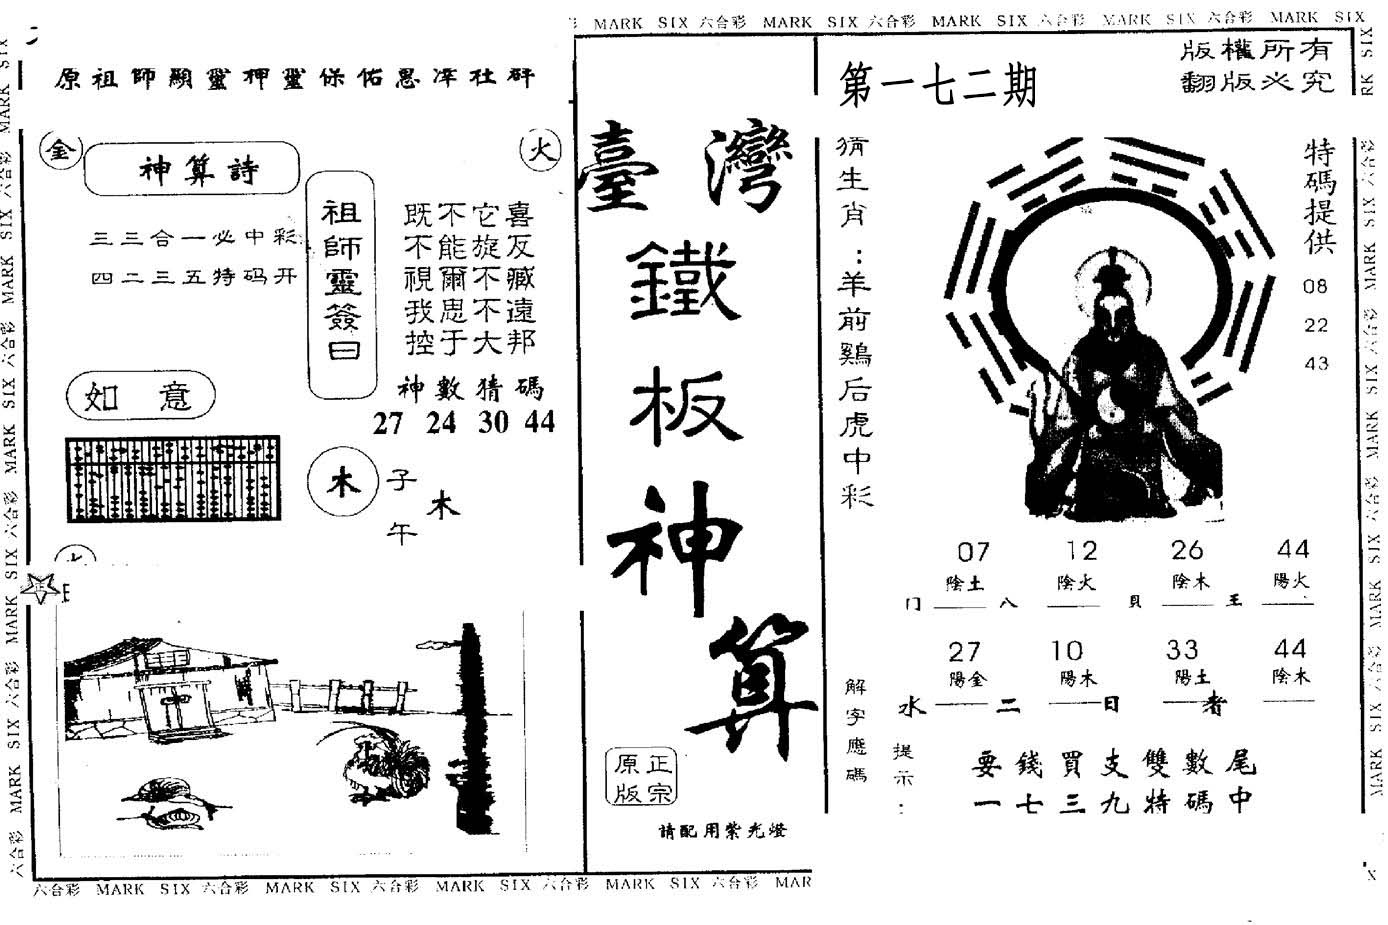 MARK SIX 六合彩 MARK SIX 六合彩 MARK SIX 六合彩 MARK SIX 六合彩 MARK SIX
原祖師顯靈押靈保佑恩澤社群
金
火
神算詩
三三合一必中彩
四二三五特码开
祖師靈簽曰
既不它喜
不能旋反
視爾不臧
我思不遠
控于大邦
神數猜碼
27 24 30 44
如意
木
子
午
木
火
正
臺灣
鐵板神算
正宗
原版
請配用紫光燈
第一七二期
版權所有
翻版必究
猜生肖：羊前鷄后虎中彩
特碼提供
08
22
43
07 12 26 44
陰土 陰火 陰木 陽火
八 貝 王
27 10 33 44
陽金 陽木 陽土 陰木
水 二 日 者
解字應碼
提示：
要錢買支雙數尾
一七三九特碼中
六合彩 MARK SIX 六合彩 MARK SIX 六合彩 MARK SIX 六合彩 MARK SIX 六合彩 MAR